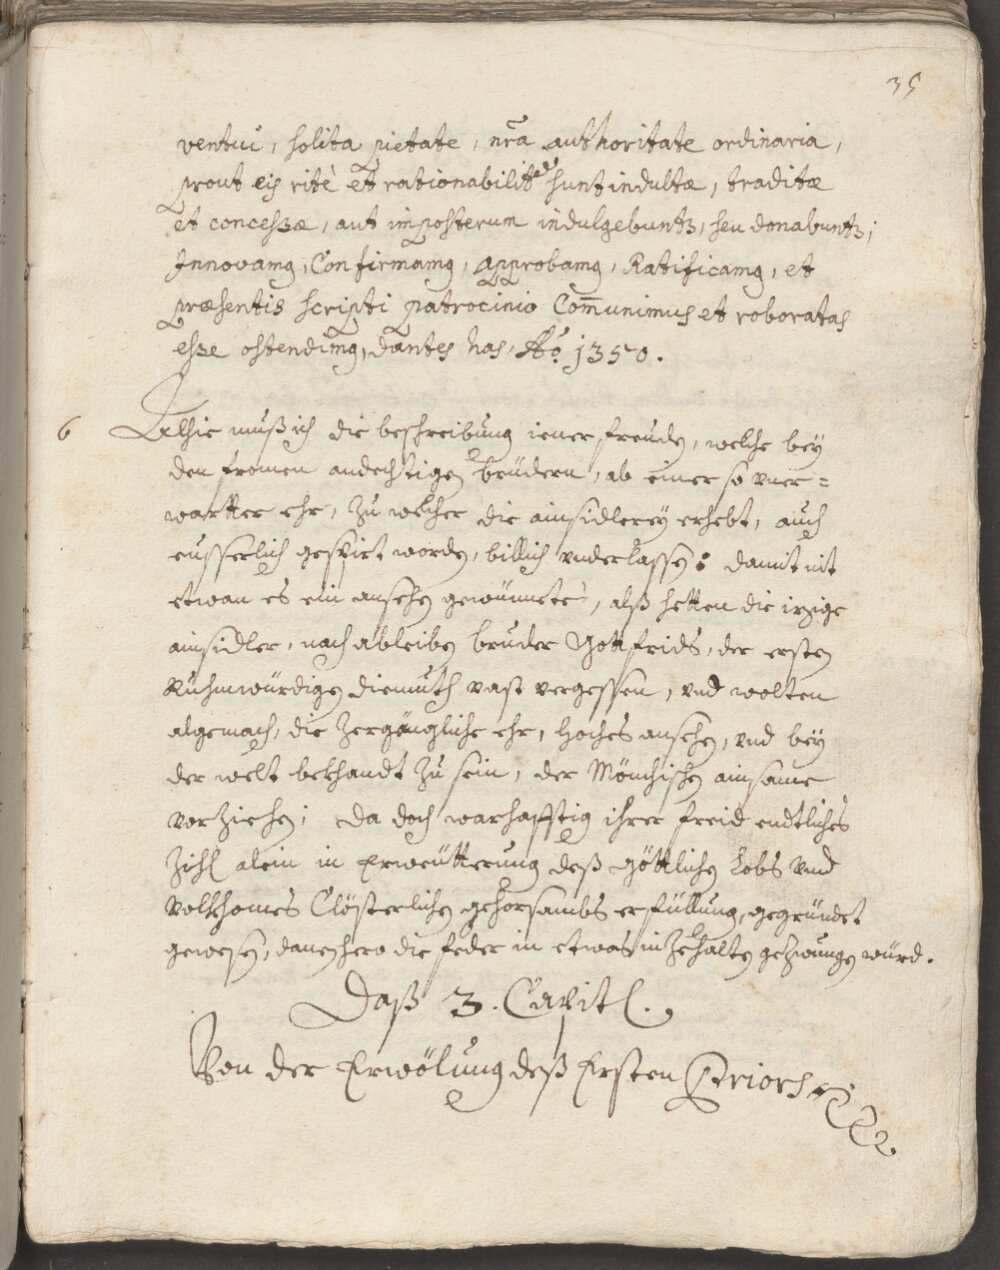 35
ventui, solita pietate, nr̃a authoritate ordinaria,
prout eis ritè et rationabiliter sunt indultæ, traditæ
et concessæ, aut imposterum indulgebuntr, seu donabuntr;
Innovamꝰ, Confirmamꝰ, Approbamꝰ, Ratificamꝰ, et
præsentis scripti patrocinio Com̃unimus et roboratas
esse ostendimꝰ, dantes has, Aõ. 1350.
6 Alhie muß ich die beschreibung iener freuden, welche bey
den fromen andechtigen brüdern, ab einer so vner=
wartter ehr, zu welcher die ainsidlerey erhebt, auch
eusserlich gespirt worden, billich vnderlassen: damit nit
etwan es ein ansehen gewünnete, alß hetten die iezige
ainsidler, nach ableiben bruder Gottfrids, der ersten
Ruhmwürdigen diemuth vast vergessen, vnd wolten
algemach, die zergängliche ehr, hoches ansehen, vnd bey
der welt bekhandt zu sein, der Mönchischen ainsame
vorziehen; da doch warhafftig ihrer freid endtliches
Zihl alein in erweütterung deß göttlichen Lobs vnd
volkhomes Clösterlichen gehorsambs erfüllung, gegründet
gewesen, danenhero die feder in etwas inzehalten gezwungen würd.
Daß 3. Capitl.
Von der Erwölung deß Ersten Priors